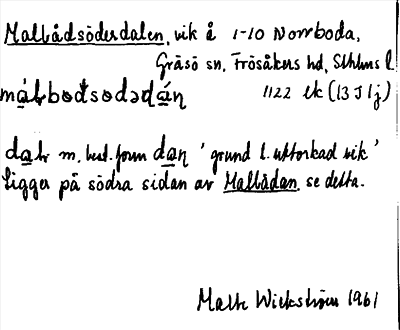 Malbådsöderdalen, vik å 1-10 Norrboda,
Gräsö sn, Frösåkers hd, Sthlms l.
málbodsodədán 1122 ek (13 J 1j)
dalr m, best. form dan 'grund l. uttorkad vik'
Ligger på södra sidan av Malbådan se detta.
Malte Wickström 1961